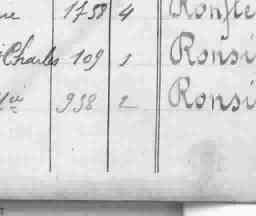 re 1758 4 Ronfle
Charles 109 1 Ronsi
938 2 Ronsi